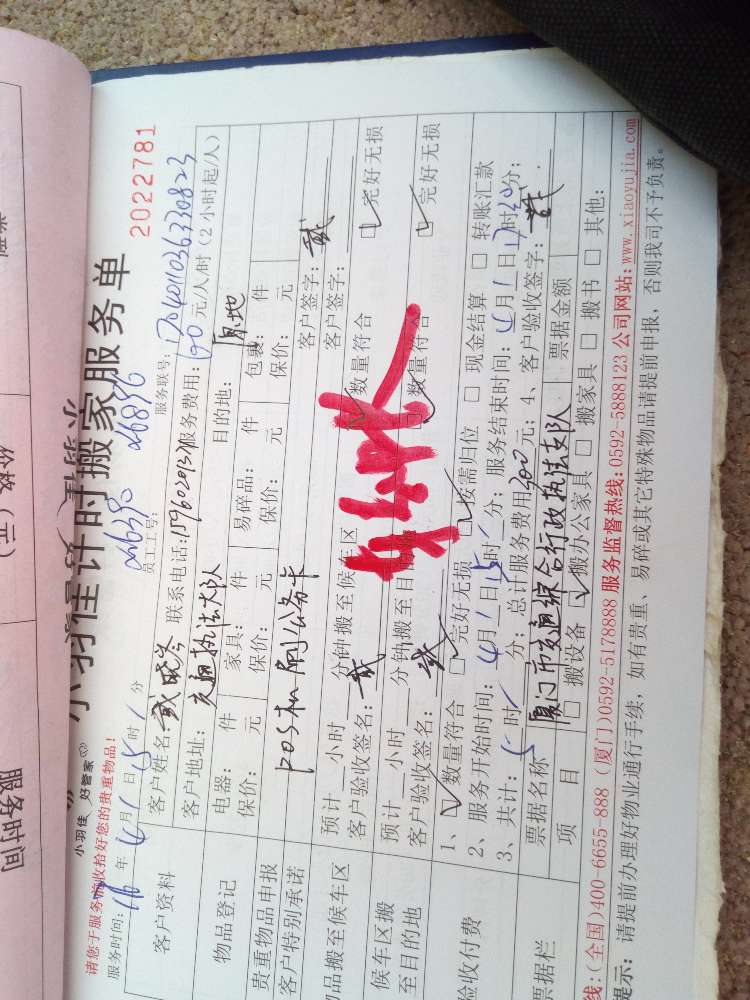 小羽佳 好管家
小羽佳计时搬家服务单
2022781
请您于服务前收拾好您的贵重物品!
员工工号:
服务联号: 1704011036330823
服务时间: 年 4月1日15时 分
客户资料
客户姓名: 戴晓岑 联系电话: 服务费用: 元/人/时(2小时起/人)
客户地址: 交通执法大队 目的地: 原地
物品登记
电器: 件 家具: 件 易碎品: 件 包裹: 件
保价: 元 保价: 元 保价: 元 保价: 元
贵重物品申报
客户特别承诺
pos机刷公务卡
客户签字: 戴
物品搬至候车区
预计 小时 分钟搬至候车区
客户签字:
客户验收签名: 戴 数量符合 完好无损
候车区搬
至目的地
预计 小时 分钟搬至目的地
客户验收签名: 戴 数量符合 完好无损
验收付费
1、 数量符合 完好无损 按需归位 现金结算 转账汇款
2、服务开始时间: 4月1日15时 分; 服务结束时间: 4月1日17时30分;
3、共计: 5时 分; 总计服务费用300元; 4、客户验收签字: 戴
票据栏
票据名称 厦门市交通综合行政执法支队 票据金额
项 目 搬设备 搬办公家具 搬家具 搬书 其他:
线:(全国)400-6655-888 (厦门)0592-5178888 服务监督热线:0592-5888123 公司网站:www.xiaoyujia.com
提示: 请提前办理好物业通行手续, 如有贵重、易碎或其它特殊物品请提前申报, 否则我司不予负责。
服务时间
价格(元)